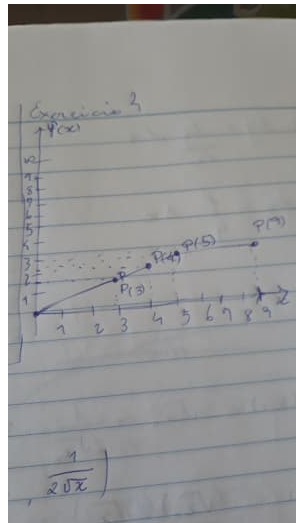 Exercicio 2
φ(x)
10
9
8
7
6
5
4
3
2
1
P
P(3)
P(4)
P(5)
P(9)
1 2 3 4 5 6 7 8 9 x
, 1/2√x )